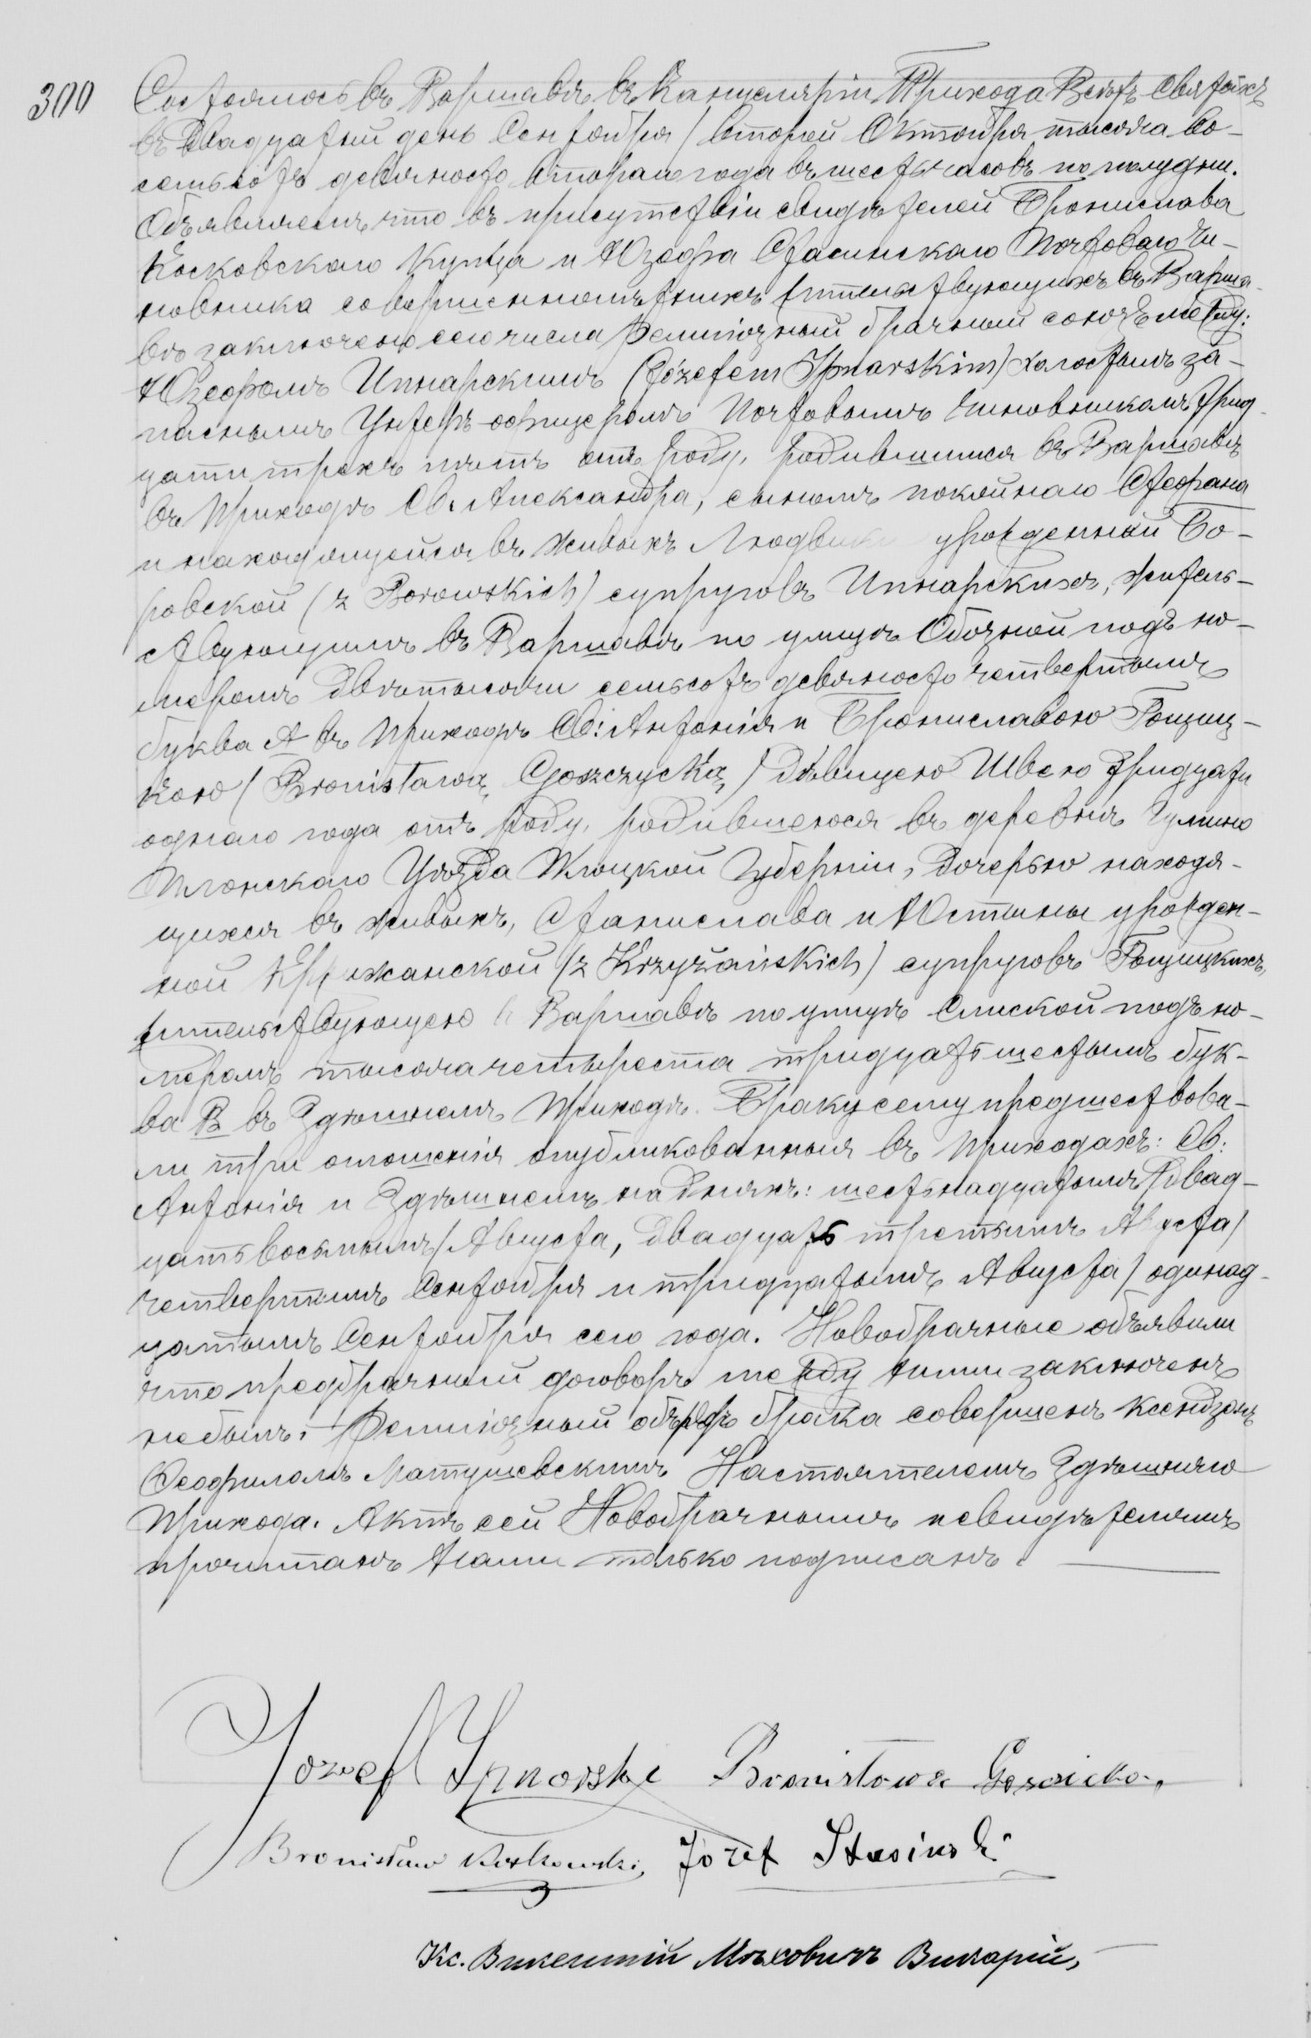 300
Состоялось въ Варшавѣ въ Канцеляріи Прихода Всѣхъ Святыхъ
въ двадцатый день Сентября / второй Октября тысяча во-
семьсотъ девяносто втораго года въ шесть часовъ по полудни.
Объявляемъ что въ присутствіи свидѣтелей Бронислава
Косковскаго Купца и Юзефа Стасинскаго Почтоваго Чи-
новника совершеннолѣтнихъ жительствующихъ въ Варша-
вѣ заключенъ сего числа религіозный брачный союзъ между:
Юзефомъ Ипнарскимъ (Józefem Ipnarskim) холостымъ за-
паснымъ Унтеръ-офицеромъ Почтовымъ Чиновникомъ трид-
цати трехъ лѣтъ отъ роду, родившимся въ Варшавѣ
въ Приходѣ Св. Александра, сыномъ покойнаго Стефана
и находящейся въ живыхъ Людвики урожденной Бо-
ровской (z Borowskich) супруговъ Ипнарскихъ, житель-
ствующимъ въ Варшавѣ по улицѣ Обозной подъ но-
меромъ двѣ тысячи семьсотъ девяносто четвертымъ
буква А въ Приходѣ Св: Антонія и Брониславою Гощиц-
кою (Bronisławą Goszczycką) дѣвицею Швею тридцати
одного года отъ роду, родившеюся въ деревнѣ Гумино
Плонскаго Уѣзда Плоцкой Губерніи, дочерью находя-
щихся въ живыхъ, Станислава и Юстины урожден-
ной Крыжанской (z Krzyżańskich) супруговъ Гощицкихъ,
жительствующею въ Варшавѣ по улицѣ Слиской подъ но-
меромъ тысяча четыреста тридцать шестымъ бук-
ва В въ здѣшнемъ Приходѣ. Браку сему предшествова-
ли три оглашенія опубликованныя въ Приходахъ: Св:
Антонія и здѣшнемъ на дняхъ: шестнадцатымъ / двад-
цать восьмымъ / Августа, двадцать третьимъ Августа /
четвертымъ Сентября и тридцатымъ Августа / одинад-
цатымъ Сентября сего года. Новобрачные объявили
что предбрачный договоръ между ними заключенъ
не былъ. Религіозный обрядъ брака совершенъ Ксендзомъ
Теофиломъ Матушевскимъ Настоятелемъ здѣшняго
Прихода. Актъ сей Новобрачнымъ и свидѣтелямъ
прочитанъ Нами только подписанъ.
Józef Ipnarski Bronisława Goszicka
Bronisław Koskowski, Józef Stasiński
Кс. Викентій Викарій,